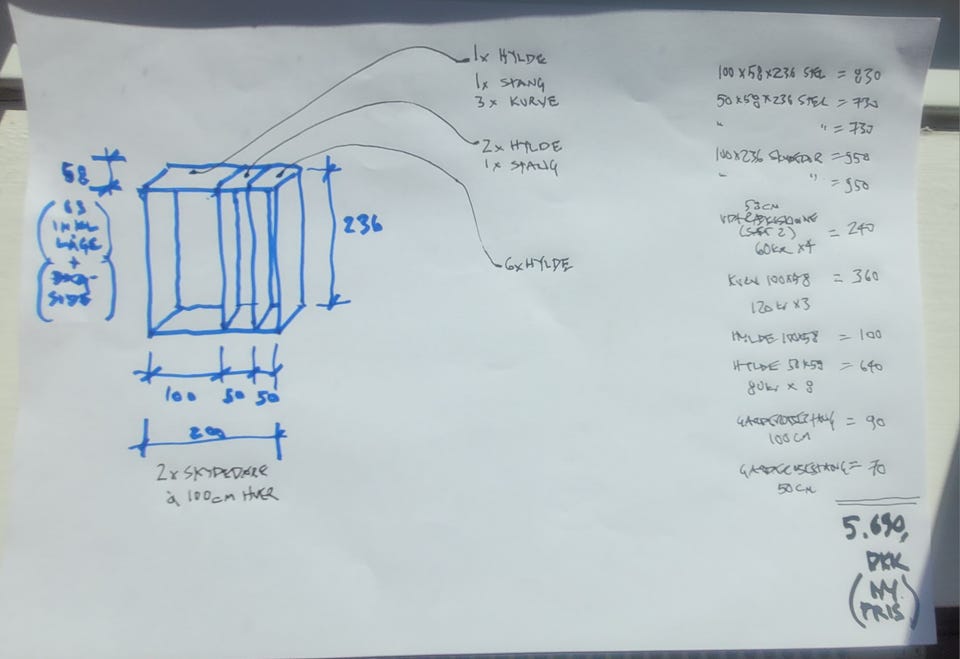 1x HYLDE
1x STANG
3x KURVE
2x HYLDE
1x STANG
6x HYLDE
58
63
INKL
LÅGE
+
236
100 50 50
200
2x SKYDEDØRE
à 100cm HVER
100x58x236 STEL = 830
50x58x236 STEL = 730
" " = 730
100x236 SKYDEDØR = 950
" " = 950
58CM
(SÆT 2) = 240
60KR x4
KURV 100x58 = 360
120kr x3
HYLDE 100x58 = 100
HYLDE 50x58 = 640
80kr x 8
GARDEROBESTANG = 90
100CM
GARDEROBESTANG = 70
50CM
5.690,
DKK
(NY
PRIS)